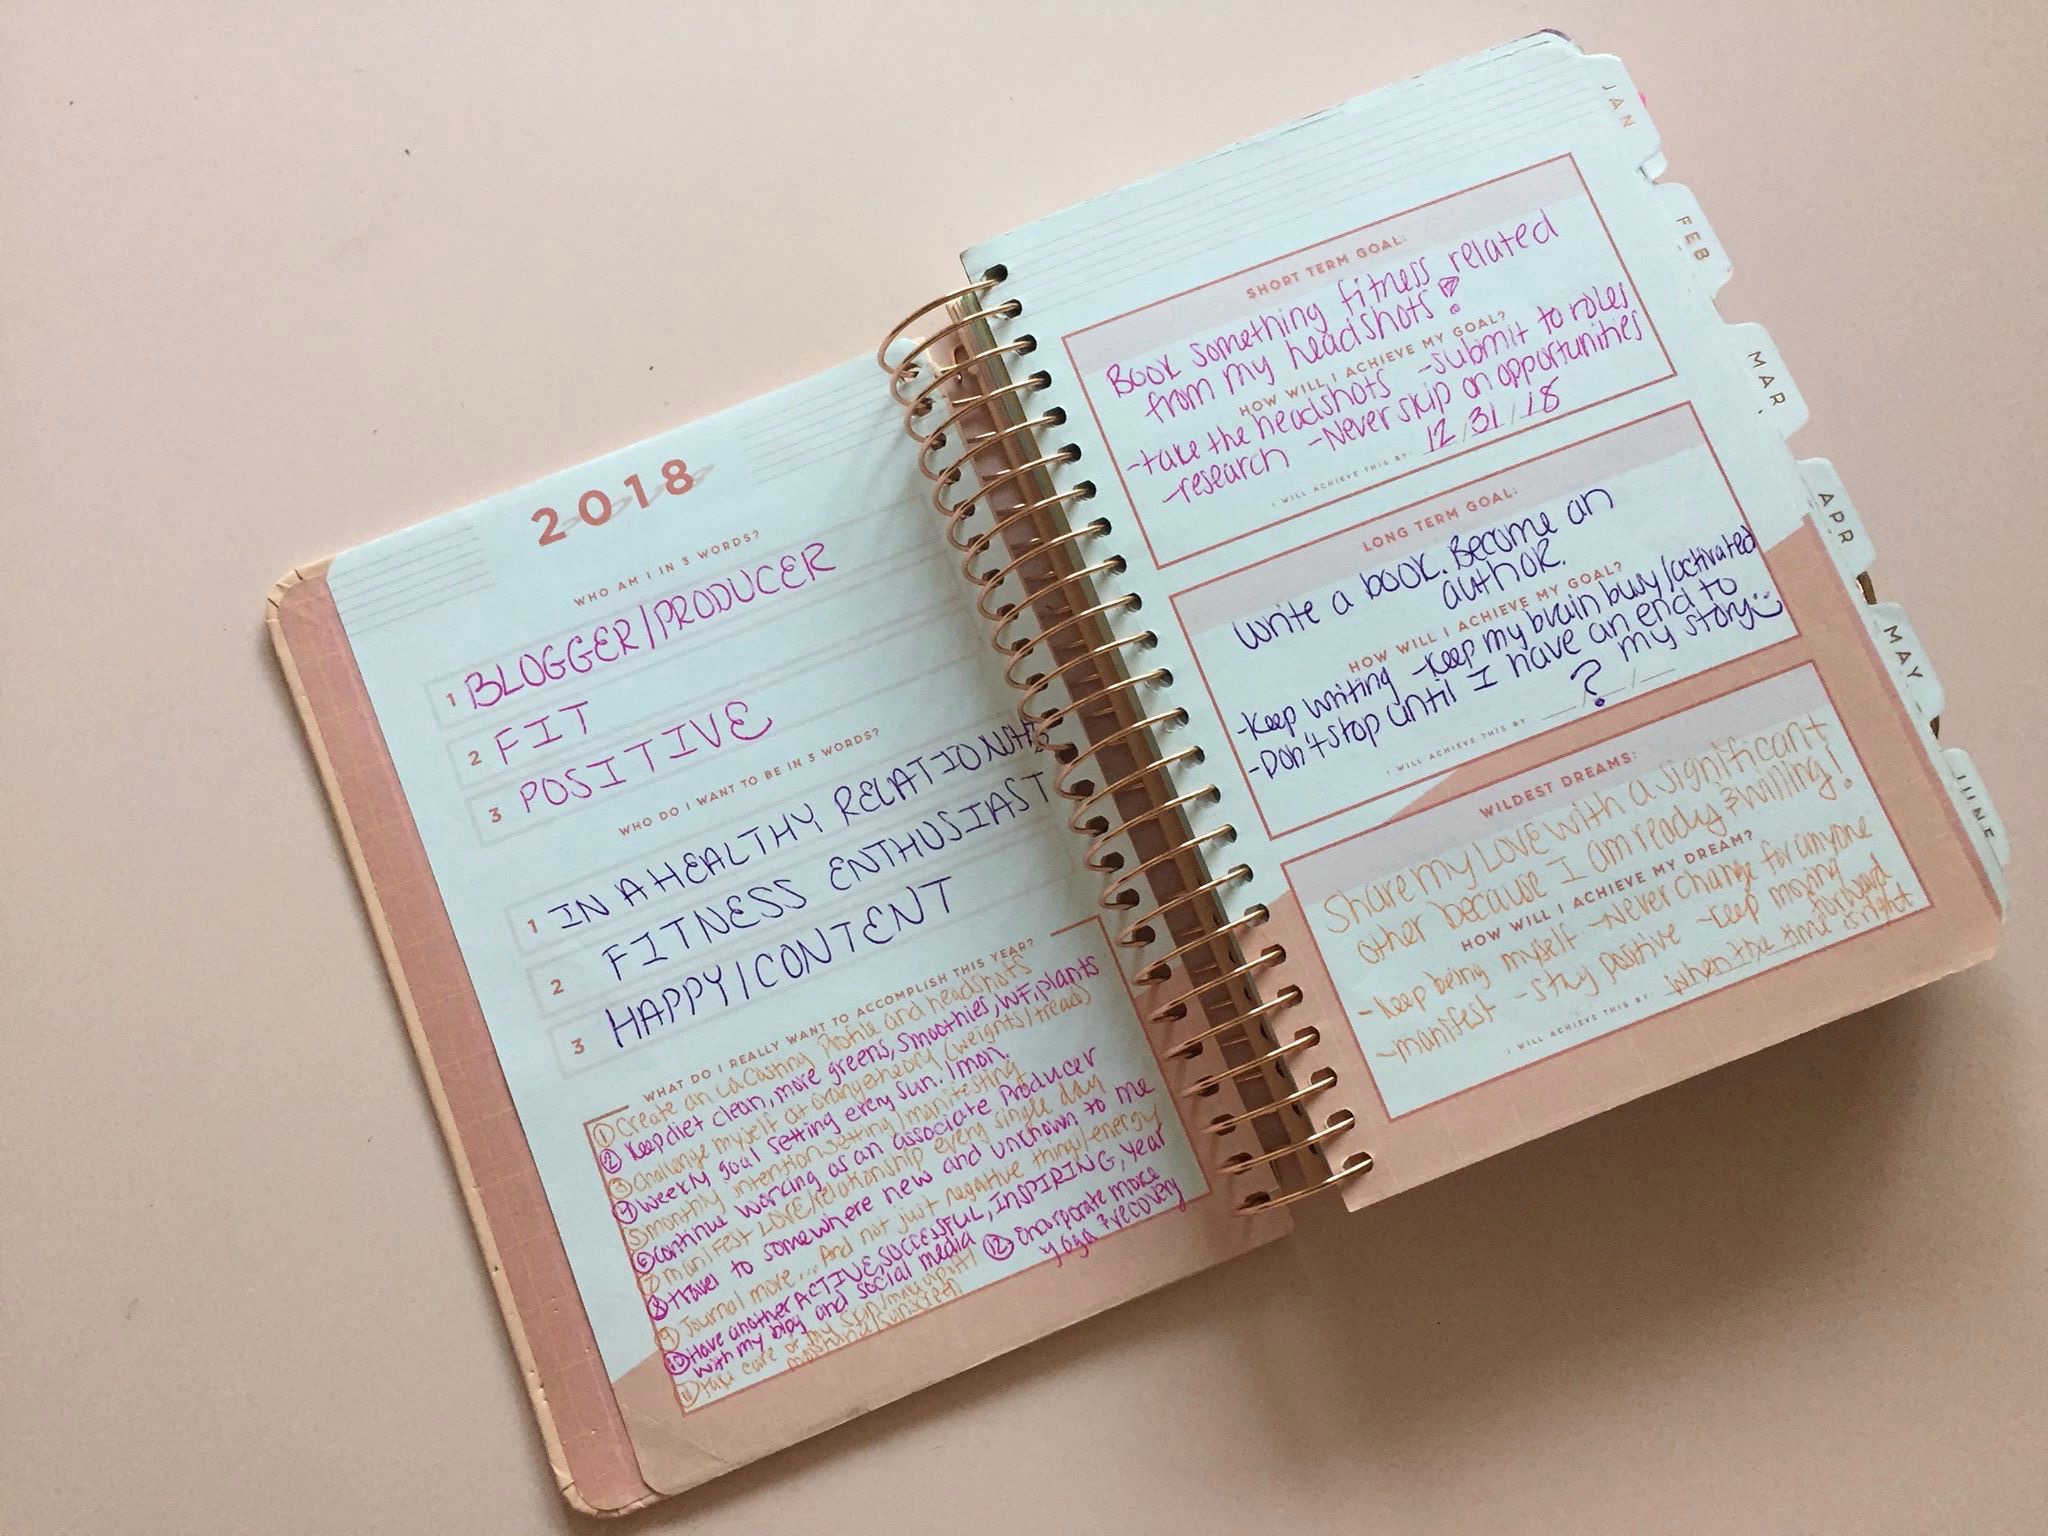 2018
WHO AM I IN 3 WORDS?
1 BLOGGER/PRODUCER
2 FIT
3 POSITIVE
WHO DO I WANT TO BE IN 3 WORDS?
1 IN A HEALTHY RELATIONSHIP
2 FITNESS ENTHUSIAST
3 HAPPY/CONTENT
WHAT DO I REALLY WANT TO ACCOMPLISH THIS YEAR?
① Create an LA Casting Profile and headshots
② Keep diet clean, more greens, smoothies, WF, plants
③ challenge myself at orangetheory (weights/treads)
④ weekly goal setting every sun./mon.
⑤ monthly intention setting/manifesting
⑥ continue working as an associate Producer
⑦ manifest LOVE/relationship every single day
⑧ travel to somewhere new and unknown to me
⑨ Journal more... And not just negative things/energy
⑩ Have another ACTIVE, SUCCESSFUL, INSPIRING, year
with my blog and social media
⑪ take care of my skin/
moisturize/sunscreen
⑫ Encorporate more
yoga & recovery
SHORT TERM GOAL:
Book something fitness related
from my headshots!
HOW WILL I ACHIEVE MY GOAL?
-take the headshots -submit to roles
-research -Never skip on opportunities
I WILL ACHIEVE THIS BY: 12/31/18
LONG TERM GOAL:
Write a book. Become an
authoR.
HOW WILL I ACHIEVE MY GOAL?
-Keep writing -Keep my brain busy/activated
-Don't stop until I have an end to
my story
I WILL ACHIEVE THIS BY / ? /
WILDEST DREAMS:
Share my Love with a significant
other because I am ready & willing!
HOW WILL I ACHIEVE MY DREAM?
-Keep being myself -Never change for anyone
-manifest -stay positive -Keep moving
forward
I WILL ACHIEVE THIS BY: when the time is right
JAN
FEB
MAR.
APR.
MAY
JUNE